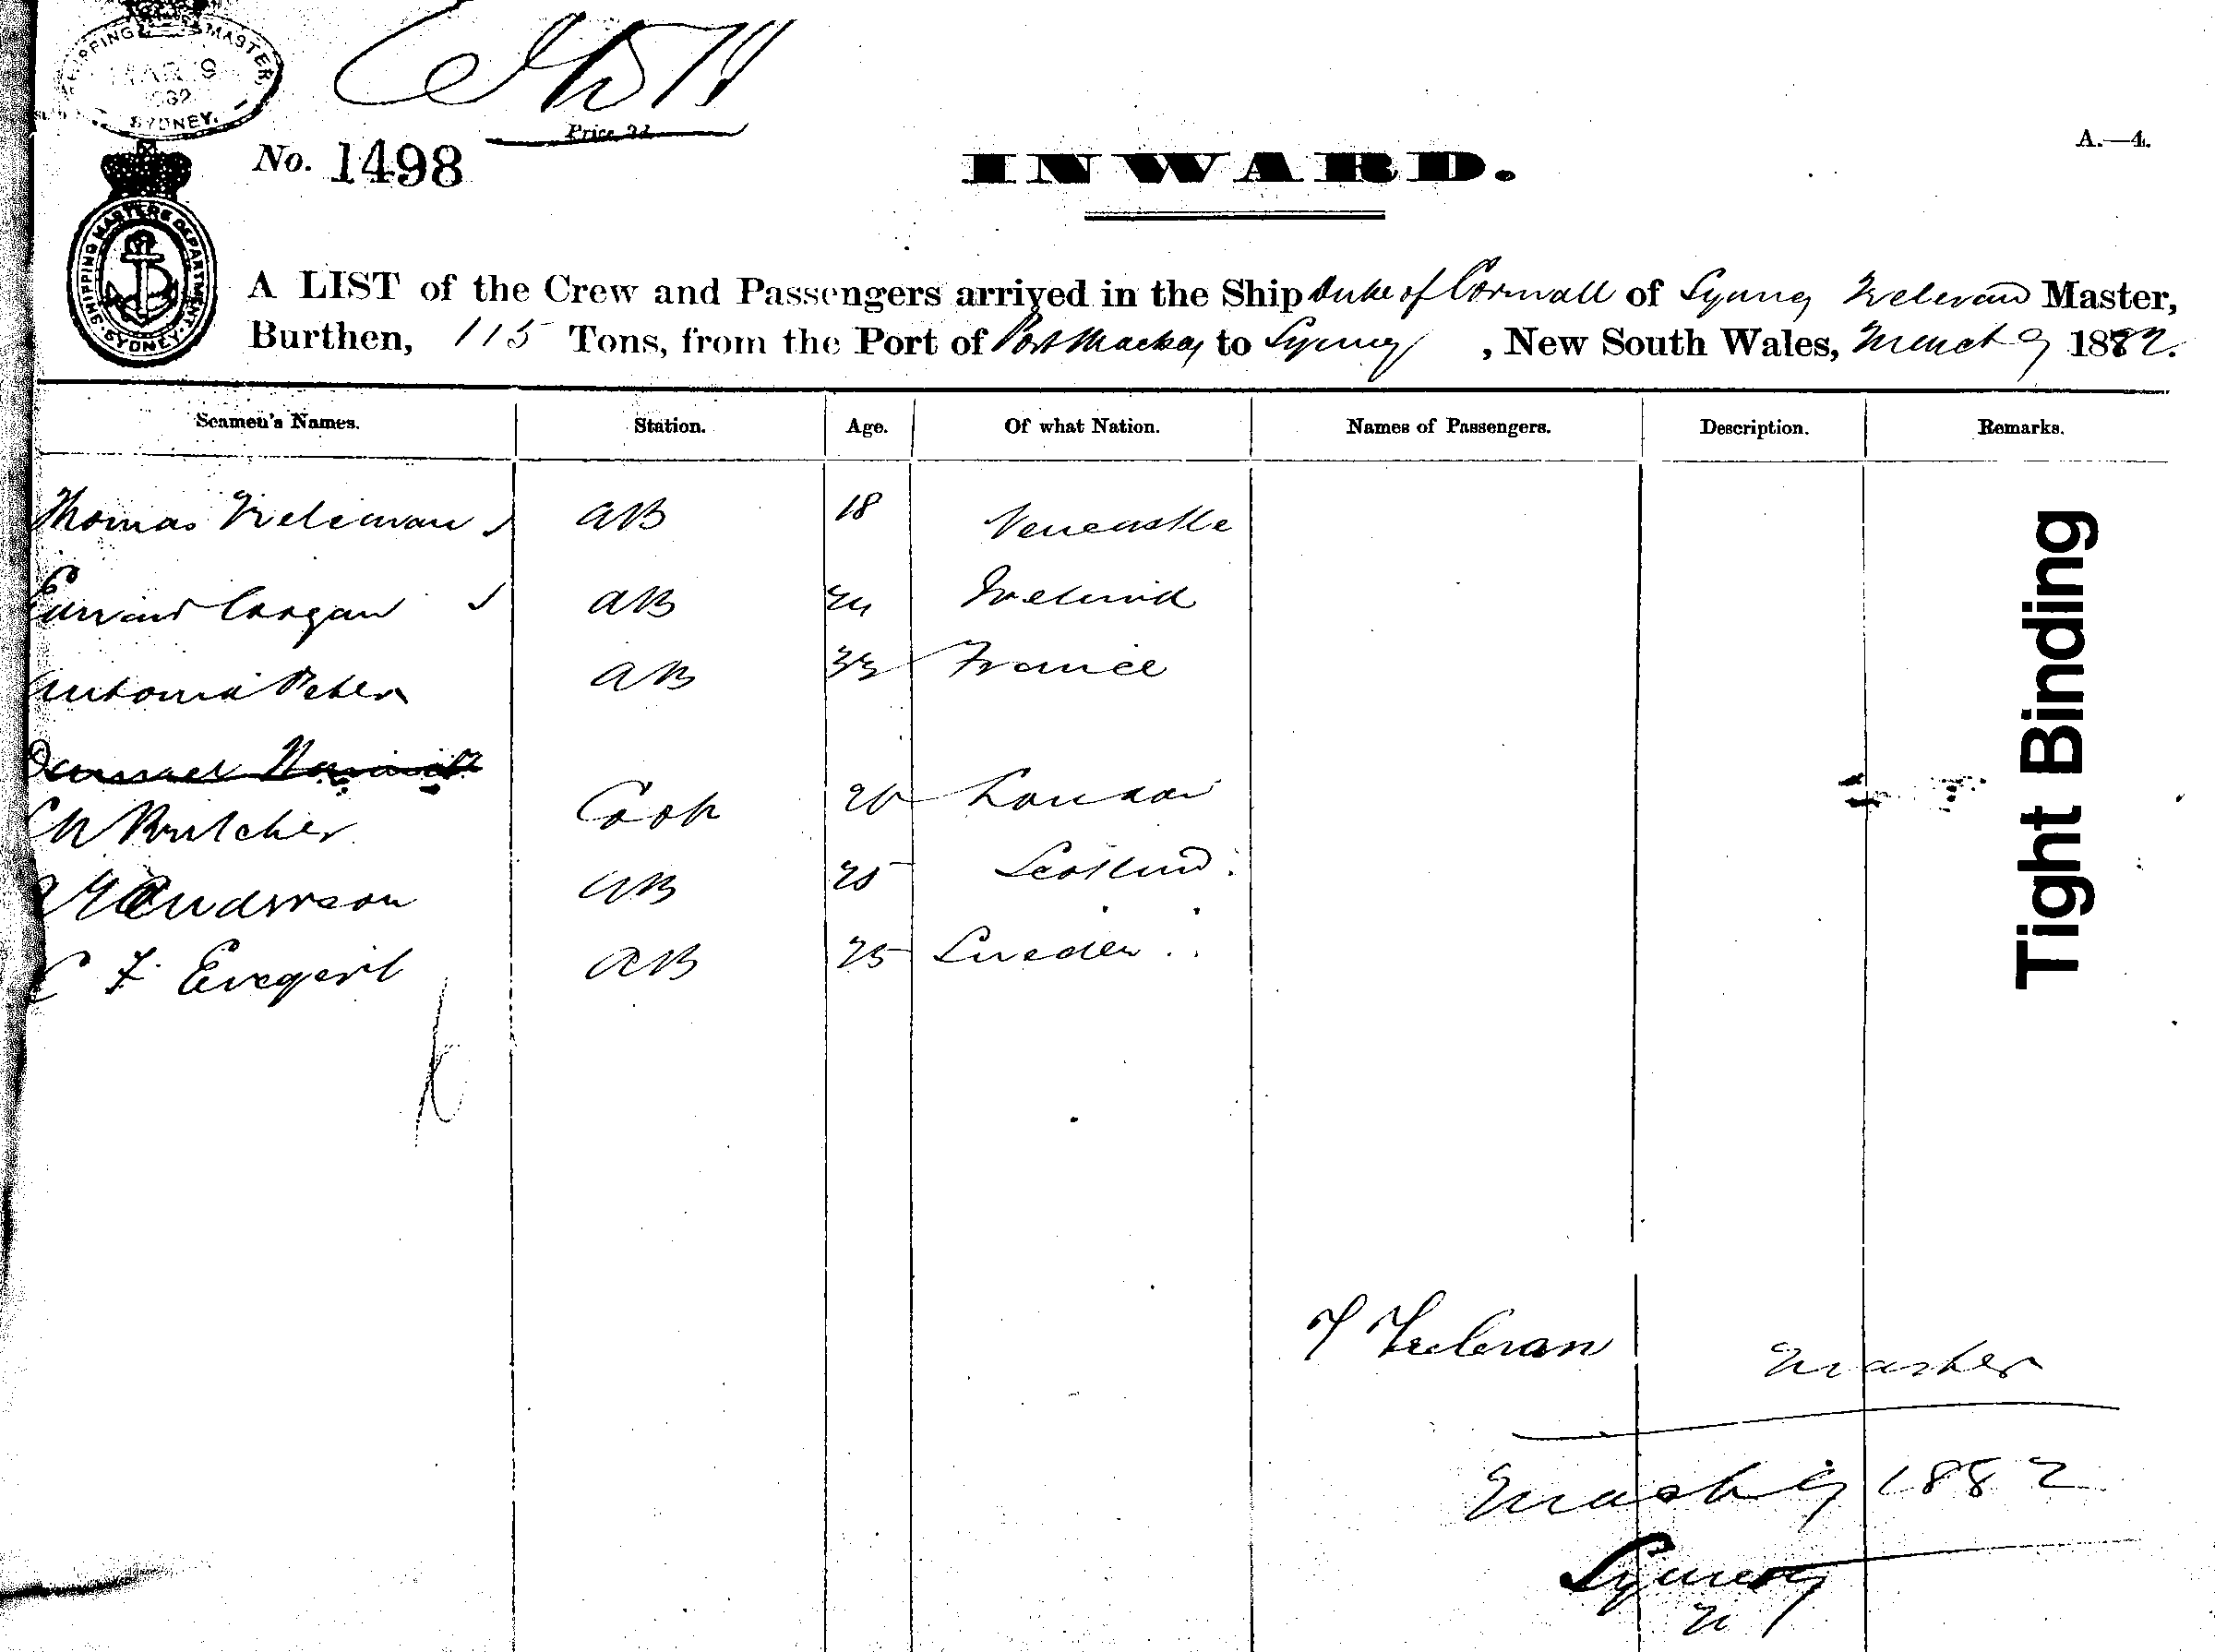 SHIPPING MASTER
MAR 9
1882
SYDNEY.
Price 2d.
No. 1498
INWARD.
A.—4.
SHIPPING MASTERS DEPARTMENT. SYDNEY
A LIST of the Crew and Passengers arrived in the Ship Duke of Cornwall of Sydney Trelevan Master,
Burthen, 115 Tons, from the Port of Port Mackay to Sydney, New South Wales, March 9 1882.
Seamen's Names. Station. Age. Of what Nation. Names of Passengers. Description. Remarks.
Thomas AB 18 Newcastle
Edward Coogan AB Ireland
Antonia Peter AB 33 France
C W Butcher Cook London
Anderson AB 25 Scotland
C F Evegert AB 25 Sweden
Tight Binding
T Trelevan Master
March 9 1882
Sydney